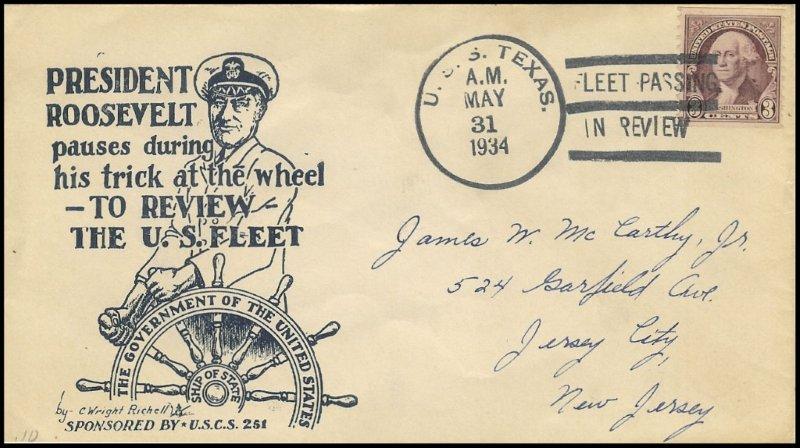 PRESIDENT
ROOSEVELT
pauses during
his trick at the wheel
—TO REVIEW—
THE U.S. FLEET
THE GOVERNMENT OF THE UNITED STATES
SHIP OF STATE
by- C Wright Richell
SPONSORED BY ★ U.S.C.S. 251
U.S.S. TEXAS.
A.M.
MAY
31
1934
FLEET PASSING
IN REVIEW
UNITED STATES POSTAGE
WASHINGTON
3 3
James W. McCarthy, Jr.
524 Garfield Ave.
Jersey City,
New Jersey